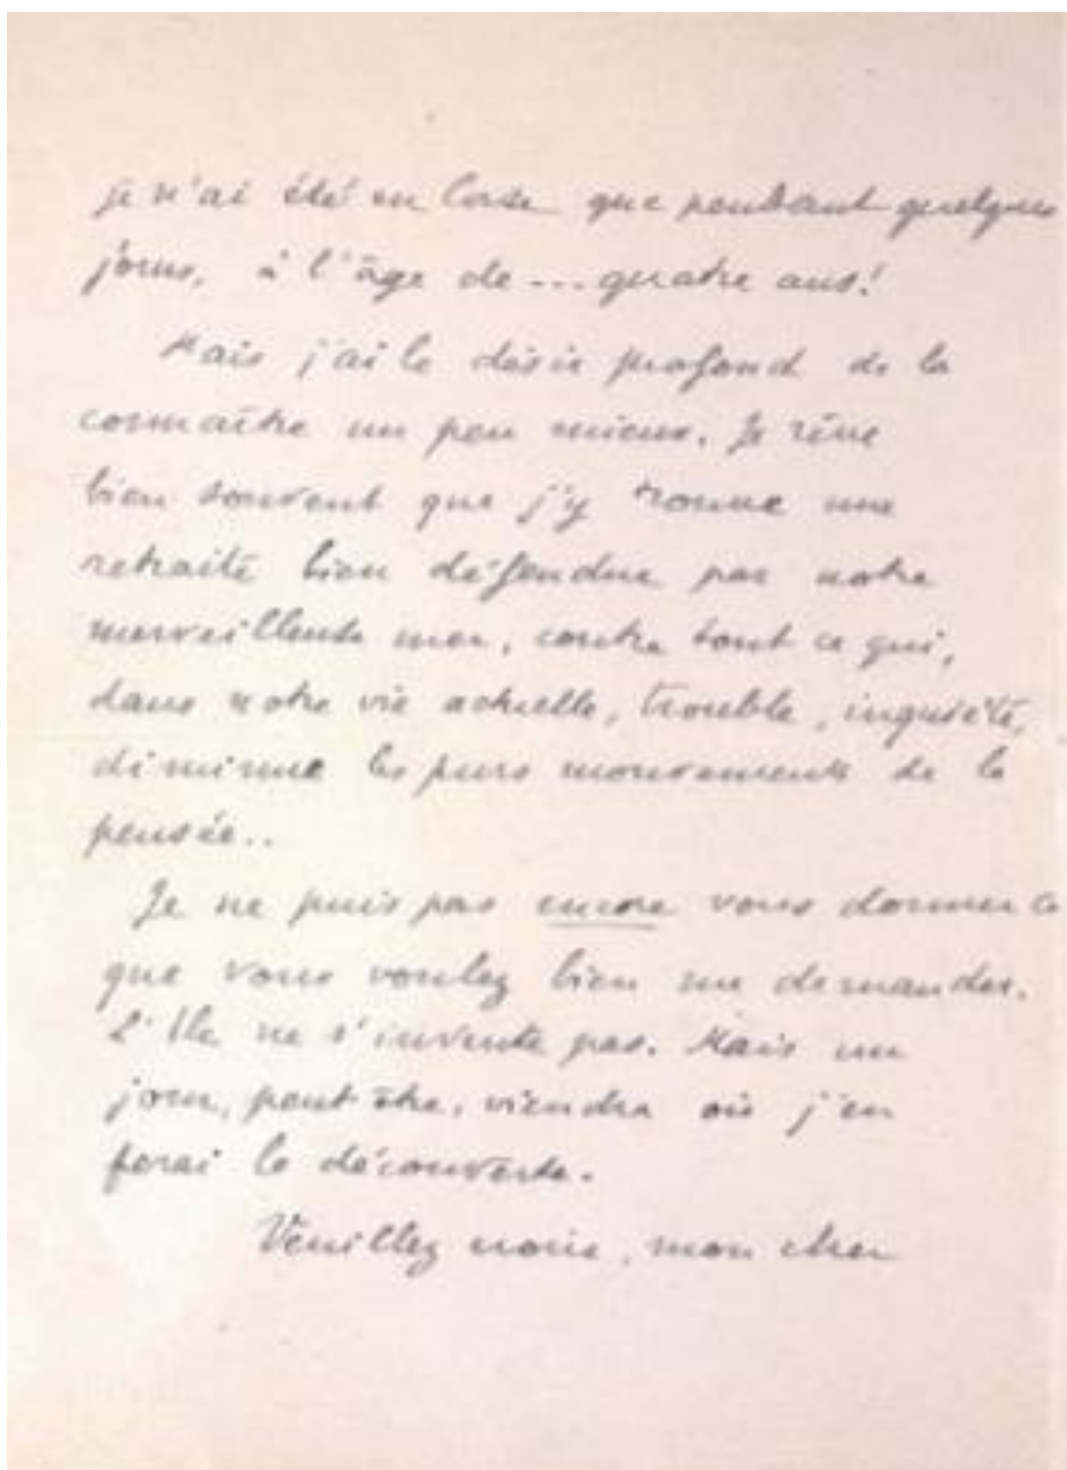 je n'ai été en Corse que pendant quelques
jours, à l'âge de... quatre ans!
Mais j'ai le désir profond de la
connaître un peu mieux. Je rêve
bien souvent que j'y trouve une
retraite bien défendue par notre
merveilleuse mer, contre tout ce qui,
dans notre vie actuelle, trouble, inquiète,
diminue les purs mouvements de la
pensée..
Je ne puis pas encore vous donner ce
que vous voulez bien me demander.
L'Ile ne s'invente pas. Mais un
jour, peut être, viendra où j'en
ferai la découverte.
Veuillez croire, mon cher